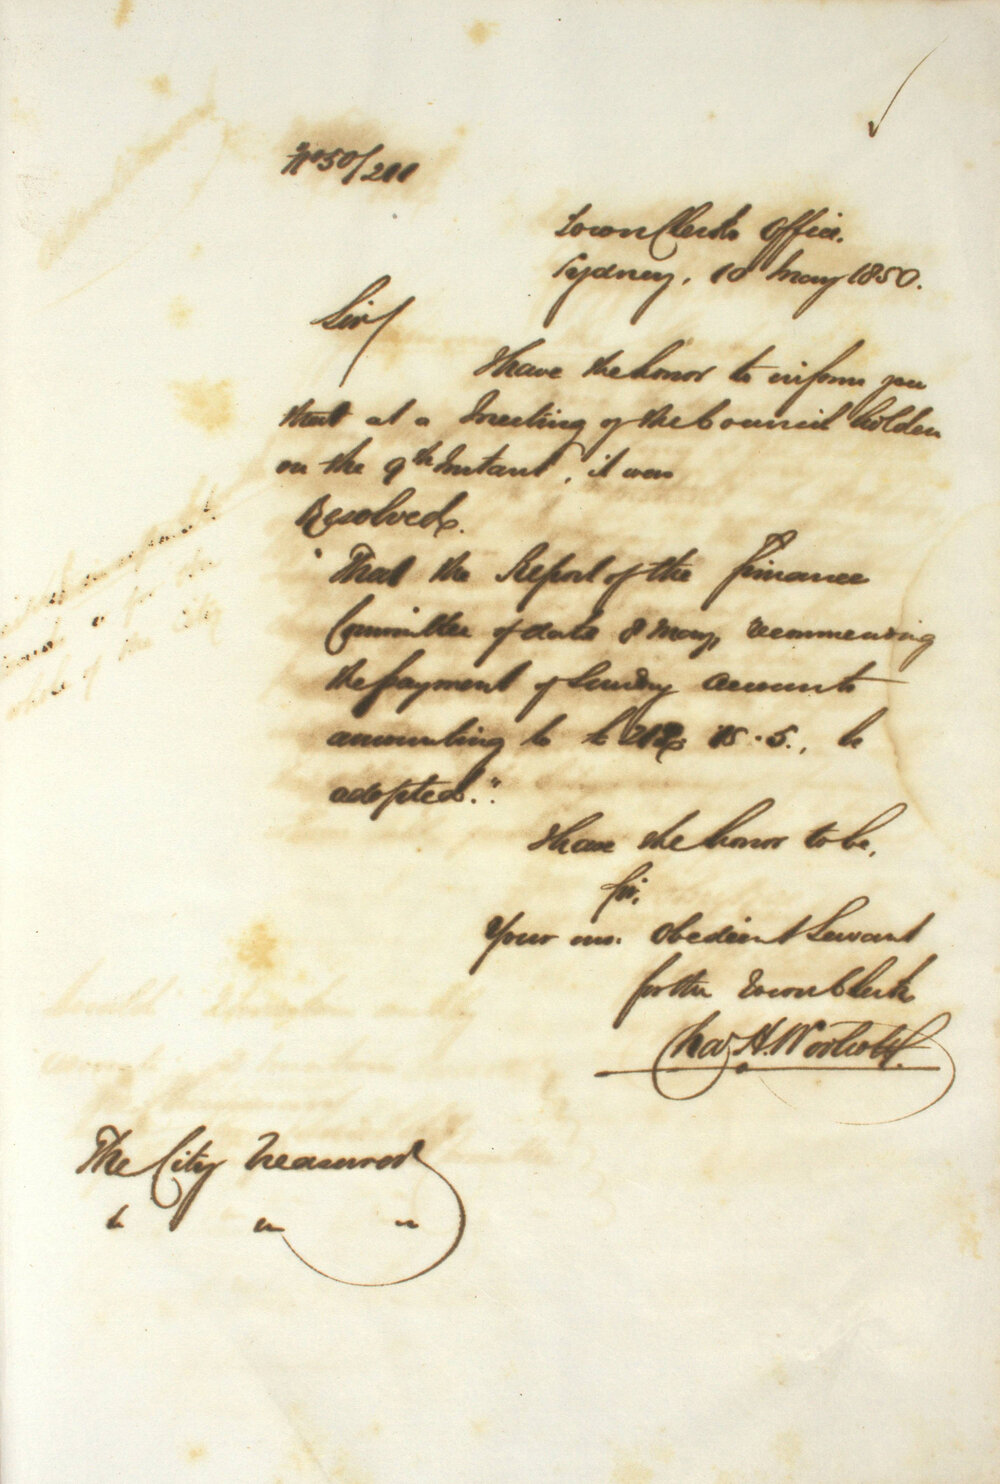 No 50/211
Town Clerk's Office.
Sydney, 10 May 1850.
Sir/
I have the honor to inform you
that at a Meeting of the Council holden
on the 9th Instant, it was
Resolved.
"That the Report of the Finance
Committee of date 8 May, recommending
the payment of Sundry accounts
amounting to £ 15.5., be
adopted."
I have the honor to be,
Sir,
Your mo. Obedient Servant
for the Town Clerk
Chas H. Woolcott
The City Treasurer